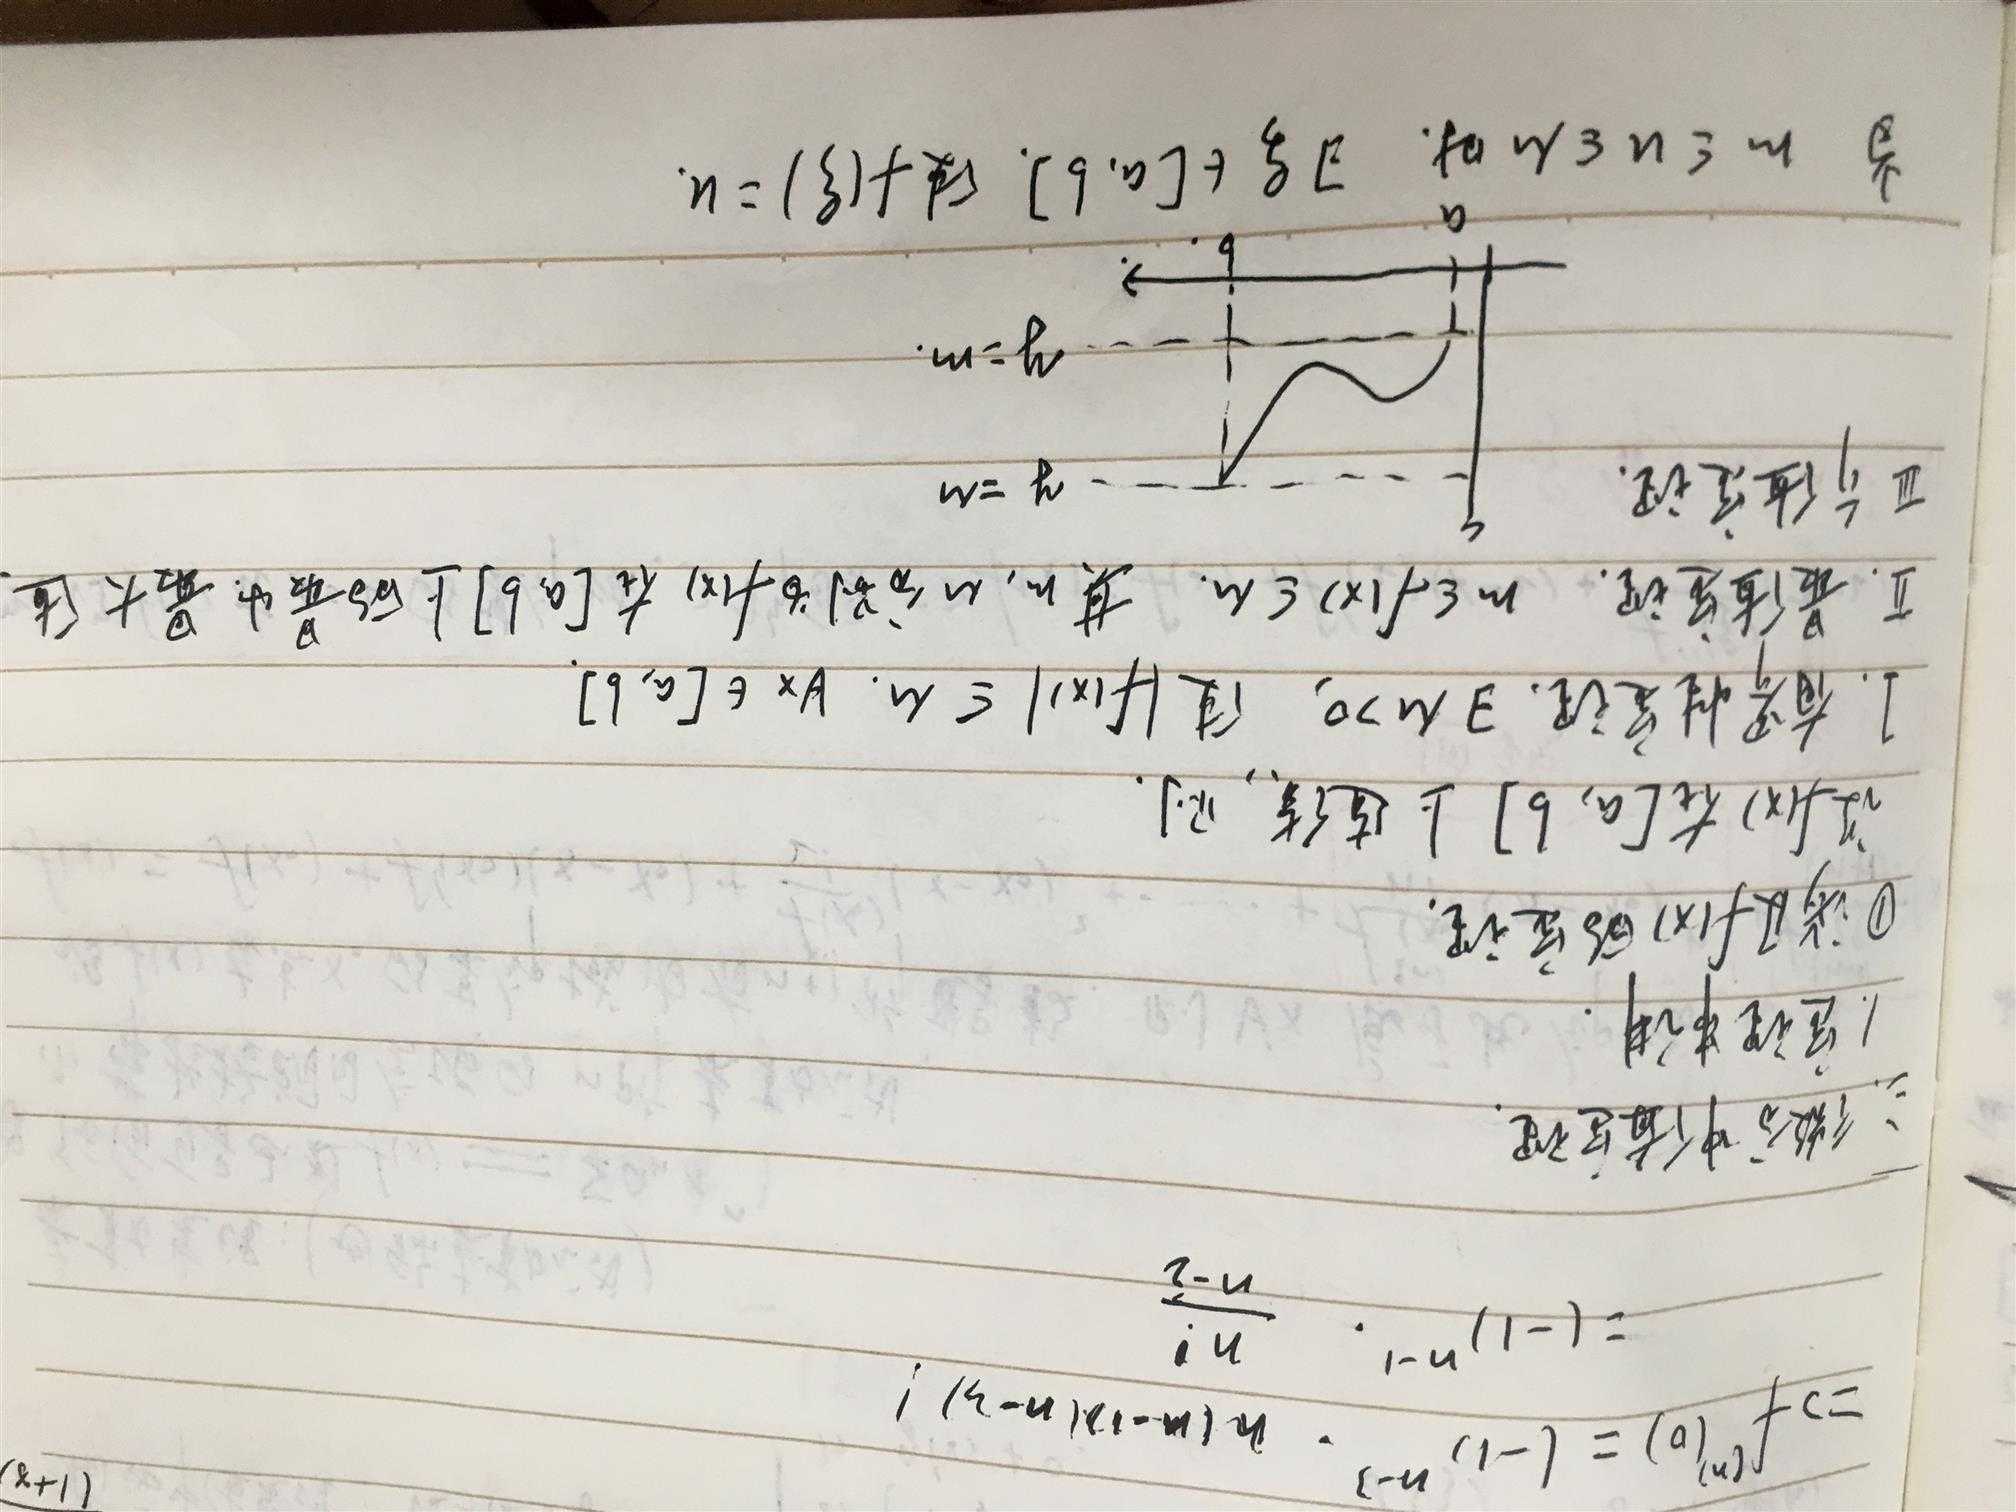 (1+x)
=> f⁽ⁿ⁾(0) = (-1)ⁿ⁻³ · n(n-1)(n-3)!
= (-1)ⁿ⁻¹ · n!/(n-2)
二. 微分中值定理.
1. 定理
① 涉及f(x)的定理.
设f(x)在[a,b]上连续, 则.
I. 有界性定理. ∃ M>0, 使 |f(x)| ≤ M. ∀x ∈ [a,b].
II. 最值定理. m≤f(x)≤M. 其 m, M 分别为f(x)在[a,b]上的最小.最大值
III 介值定理.
y=M
y=m.
a b
当 m≤u≤M时. ∃ξ∈[a,b]. 使f(ξ)=u.